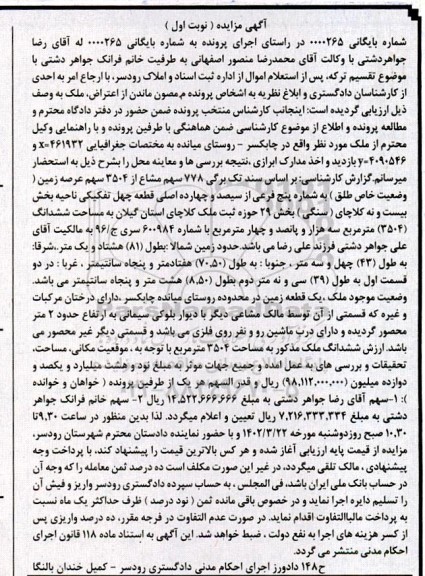 آگهی مزایده ( نوبت اول )
شماره بایگانی ۰۰۰۰۲۶۵ در راستای اجرای پرونده به شماره بایگانی ۰۰۰۰۲۶۵ له آقای رضا
جواهردشتی با وکالت آقای محمدرضا منصور اصفهانی به طرفیت خانم فرانک جواهر دشتی با
موضوع تقسیم ترکه، پس از استعلام اموال از اداره ثبت اسناد و املاک رودسر، با ارجاع امر به احدی
از کارشناسان دادگستری و ابلاغ نظریه به اشخاص پرونده م.مصون ماندن از اعتراض، ملک به وصف
ذیل ارزیابی گردیده است: اینجانب کارشناس منتخب پرونده ضمن حضور در دفتر دادگاه محترم و
مطالعه پرونده و اطلاع از موضوع کارشناسی ضمن هماهنگی با طرفین پرونده و با راهنمایی وکیل
محترم از ملک مورد نظر واقع در چابکسر - روستای میانده به مختصات جغرافیایی x=۴۶۱۹۳۲ و
y=۴۰۹۰۵۴۶ بازدید و اخذ مدارک ابرازی ،نتیجه بررسی ها و معاینه محل را بشرح ذیل به استحضار
میرسانم.گزارش کارشناسی: بر اساس سند تک برگی ۷۷۸ سهم مشاع از ۳۵۰۴ سهم عرصه زمین (
وضعیت خاص طلق ) به شماره پنج فرعی از سیصد و چهارده اصلی قطعه چهل تفکیکی ناحیه بخش
بیست و نه کلاچای ( سنگی ) بخش ۲۹ حوزه ثبت ملک کلاچای استان گیلان به مساحت ششدانگ
(۳۵۰۴) مترمربع سه هزار و پانصد و چهار مترمربع با شماره ۶۰۰۹۸۴ سری ج/۹۶ به مالکیت آقای
علی جواهر دشتی فرزند علی رضا می باشد.حدود زمین شمالا :بطول (۸۱) هشتاد و یک متر ،شرقا:
به طول (۴۳) چهل و سه متر ، جنوبا : به طول (۷۰،۵۰) هفتادمتر و پنجاه سانتیمتر ، غربا : در دو
قسمت اول به طول (۳۹) سی و نه متر دوم بطول (۸،۵۰) هشت متر و پنجاه سانتیمتر می باشد.
وضعیت موجود ملک ،یک قطعه زمین در محدوده روستای میانده چابکسر ،دارای درختان مرکبات
و غیره که قسمتی از آن توسط مالک مشاعی دیگر با دیوار بلوکی سیمانی به ارتفاع حدود ۲ متر
محصور گردیده و دارای درب ماشین رو و نفر روی فلزی می باشد و قسمتی دیگر غیر محصور می
باشد. ارزش ششدانگ ملک مذکور به مساحت ۳۵۰۴ مترمربع با توجه به ، موقعیت مکانی، مساحت،
تحقیقات و بررسی های به عمل آمده و جمیع جهات موثر به مبلغ نود و هشت میلیارد و یکصد و
دوازده میلیون (۹۸،۱۱۲،۰۰۰،۰۰۰) ریال و قدر السهم هر یک از طرفین پرونده ( خواهان و خوانده
): ۱-سهم آقای رضا جواهر دشتی به مبلغ ۱۴،۵۲۲،۶۶۶،۶۶۶ ریال ۲- سهم خانم فرانک جواهر
دشتی به مبلغ ۷،۲۱۶،۳۳۳،۳۳۴ ریال تعیین و اعلام میگردد. لذا بدین منظور در ساعت ۹،۳۰تا
۱۰،۳۰ صبح روزدوشنبه مورخه ۱۴۰۲/۳/۲۲ و با حضور نماینده دادستان محترم شهرستان رودسر،
مزایده از قیمت پایه ارزیابی آغاز شده و هر کس بالاترین قیمت را پیشنهاد کند، با پرداخت وجه
پیشنهادی ، مالک تلقی میگردد، در غیر این صورت مکلف است ده درصد ثمن معامله را که وجه آن
در حساب بانک ملی ایران باشد، فی المجلس ، به حساب سپرده دادگستری رودسر واریز و فیش آن
را تسلیم دایره اجرا نماید و در خصوص باقی مانده ثمن ( نود درصد ) ظرف حداکثر یک ماه نسبت
به پرداخت مابالتفاوت اقدام نماید. در صورت عدم التفاوت در فرجه مقرر، ده درصد واریزی پس
از کسر هزینه های اجرا به نفع دولت ، ضبط خواهد شد. این آگهی به استناد ماده ۱۱۸ قانون اجرای
احکام مدنی منتشر می گردد.
ح۱۴۸ دادورز اجرای احکام مدنی دادگستری رودسر - کمیل خندان بالنگا